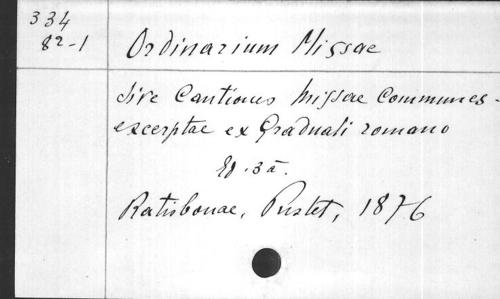 334
82-1
Ordinarium Missae
sive Cantiones Missae Communes -
excerptae ex Graduali romano
Ed. 3a.
Ratisbonae, Pustet, 1876